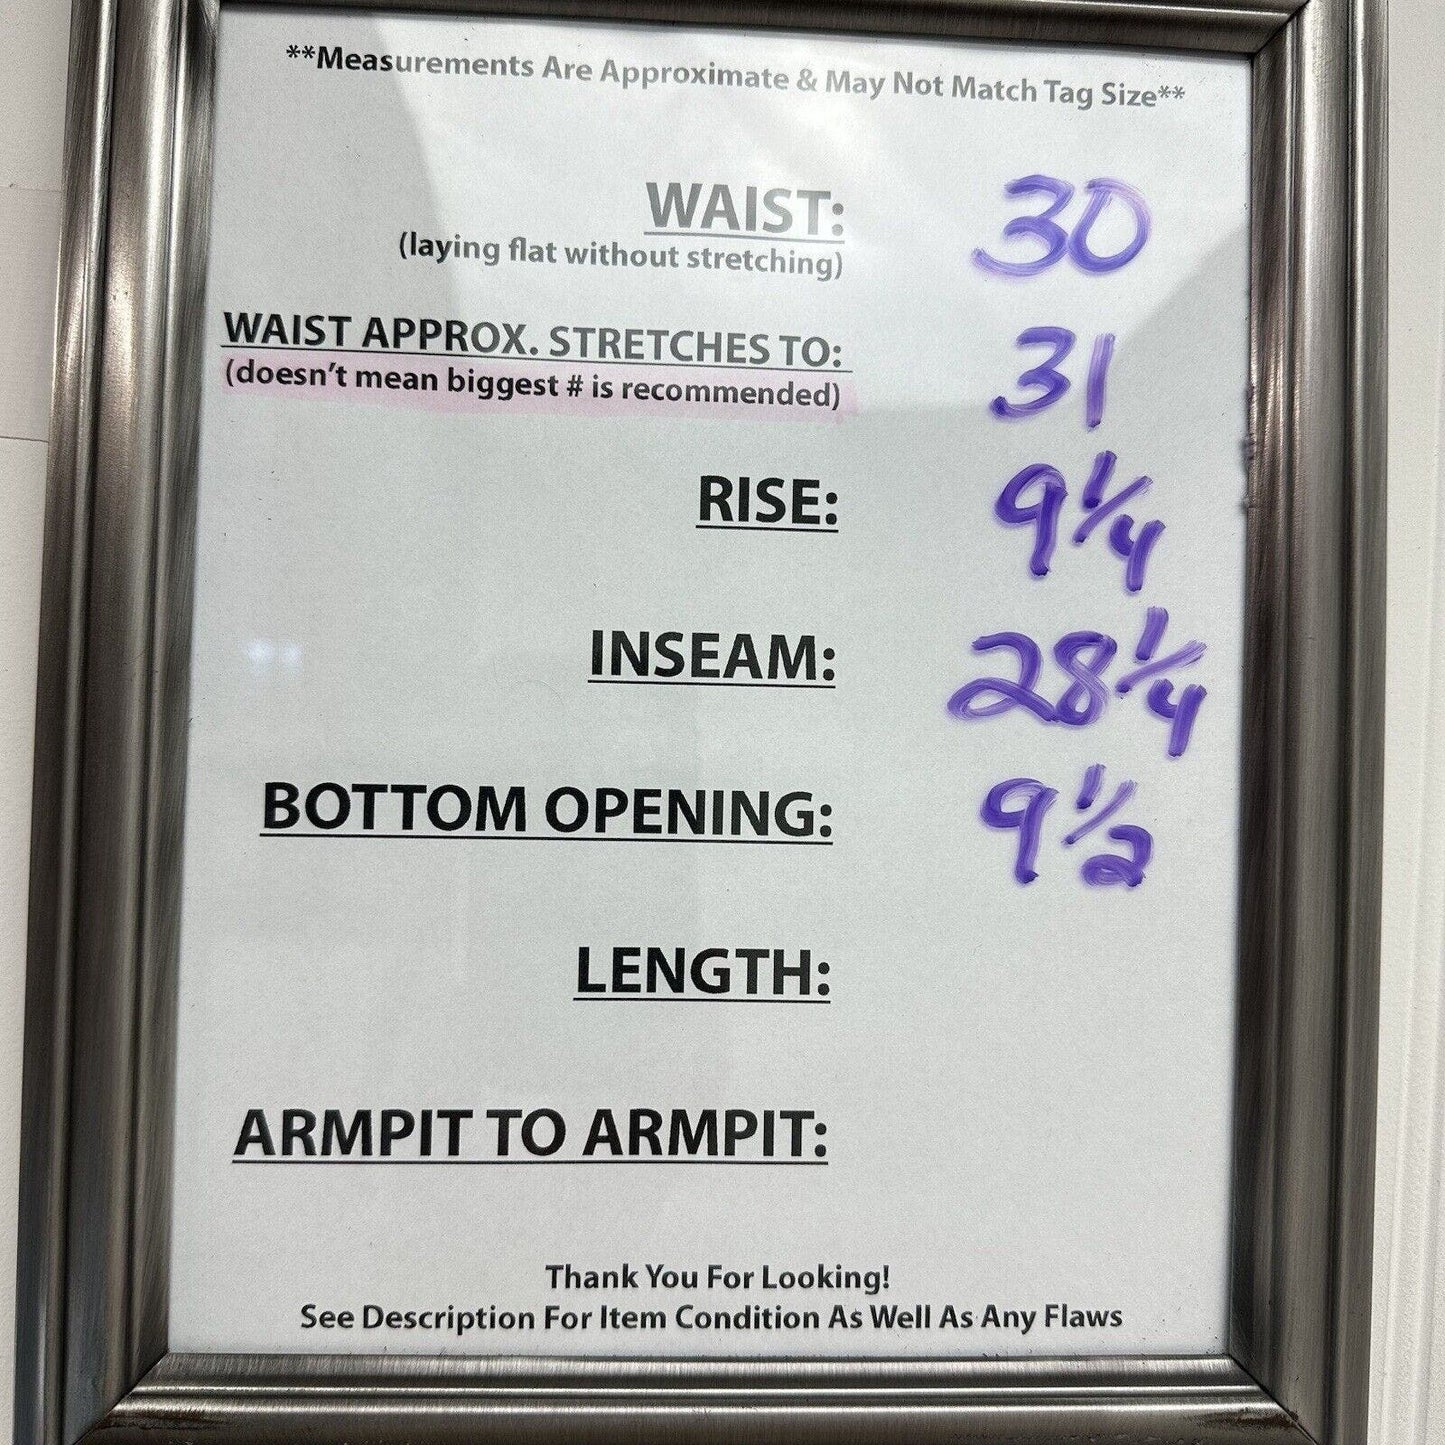 **Measurements Are Approximate & May Not Match Tag Size**
WAIST: 30
(laying flat without stretching)
WAIST APPROX. STRETCHES TO: 31
(doesn't mean biggest # is recommended)
RISE: 9 1/4
INSEAM: 28 1/4
BOTTOM OPENING: 9 1/2
LENGTH:
ARMPIT TO ARMPIT:
Thank You For Looking!
See Description For Item Condition As Well As Any Flaws